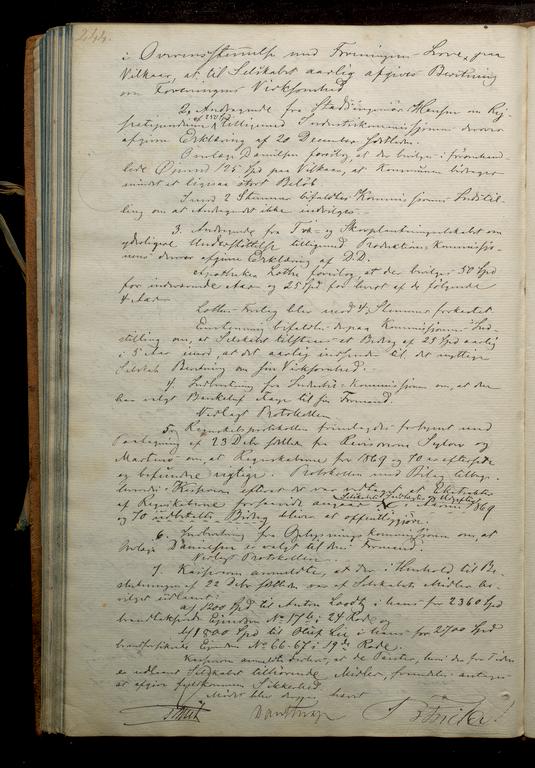 244.
i Overensstemmelse med Foreningens Love, paa
Vilkaar, at til Selskabet aarlig afgives Beretning
om Foreningens Virksomhed
2, Andragende fra Stadsingeniør Hansen om Rej-
sestipendium af 250 Spd tilligemed Industrikommissionens derover
afgivne Erklæring af 20 December sidstleden.
Overlæge Danielsen foreslog, at der bevilges i foranhand-
lede Øiemed 125 Spd paa Vilkaar, at Kommunen bidrager
mindst et ligesaa stort Beløb
Imod 2 Stemmer bifaldtes Kommissionens Indstil-
ling om at Andragendet ikke indvilges.
3. Andragende fra Træ- og Skovplantningsselskabet om
yderligere Understøttelse tilligemed Productions Kommissio-
nens derover afgivne Erklæring af D.D.
Apotheker Lothe foreslog, at der bevilges 50 Spd
for indeværende Aar og 25 Spd for hvert af de følgende
4 Aar
Lothes Forslag blev imod 4 Stemmer forkastet
Eenstemmig bifaldtes derpaa Kommissionens Ind-
stilling om, at Selskabet tilstaaes et Bidrag af 25 Spd aarlig
i 5 Aar imod, at det aarlig indsender til det nyttige
Selskab Beretning om sin Virksomhed.
4. Indberetning fra Industri-Kommissionen om, at den
har valgt Bankchef Faye til sin Formand.
Vedlagt Protokollen
5, Regnskabsprotokollen fremlagdes forsynet med
Paategning af 23 Debr sidstl. fra Revisorerne Sylow og
Martens om, at Regnskaberne for 1869 og 70 ere efterseede
og befundne rigtige. Protokollen med Bilag tilbage-
leveredes Kassereren efteret det var vedtaget at Extrakter
af Regnskaberne forsaavidt angaaer Selskabets Indtægter og Udgifter i Aarene 1869
og 70 bliver at offentliggjøre.
6. Indberetning fra Oplysningskommissionen om, at
Overlæge Danielsen er valgt til dens Formand.
Vedlagt Protokollen.
7. Kassereren anmeldte, at der i Henhold til Be-
slutningen af 22 Debr sidstleden om af Selskabets Midler be-
vilget udlaant:
a/ 1200 Spd til Anton Loodtz i hans for 2360 Spd
brandtaxerede Ejendom No 17 b i 24 Rode og
b/ 1800 Spd til Oluf Lie i hans for 2700 Spd
brandforsikrede Ejendom No 66-67 i 19de Rode.
Kassereren anmeldte derhos, at de Panter, hvori der for Tiden
er udlaant Selskabet tilhørende Midler, formentlig antages
at afgive fyldestgjørende Sikkerhed.
Mødet blev derpaa hævet